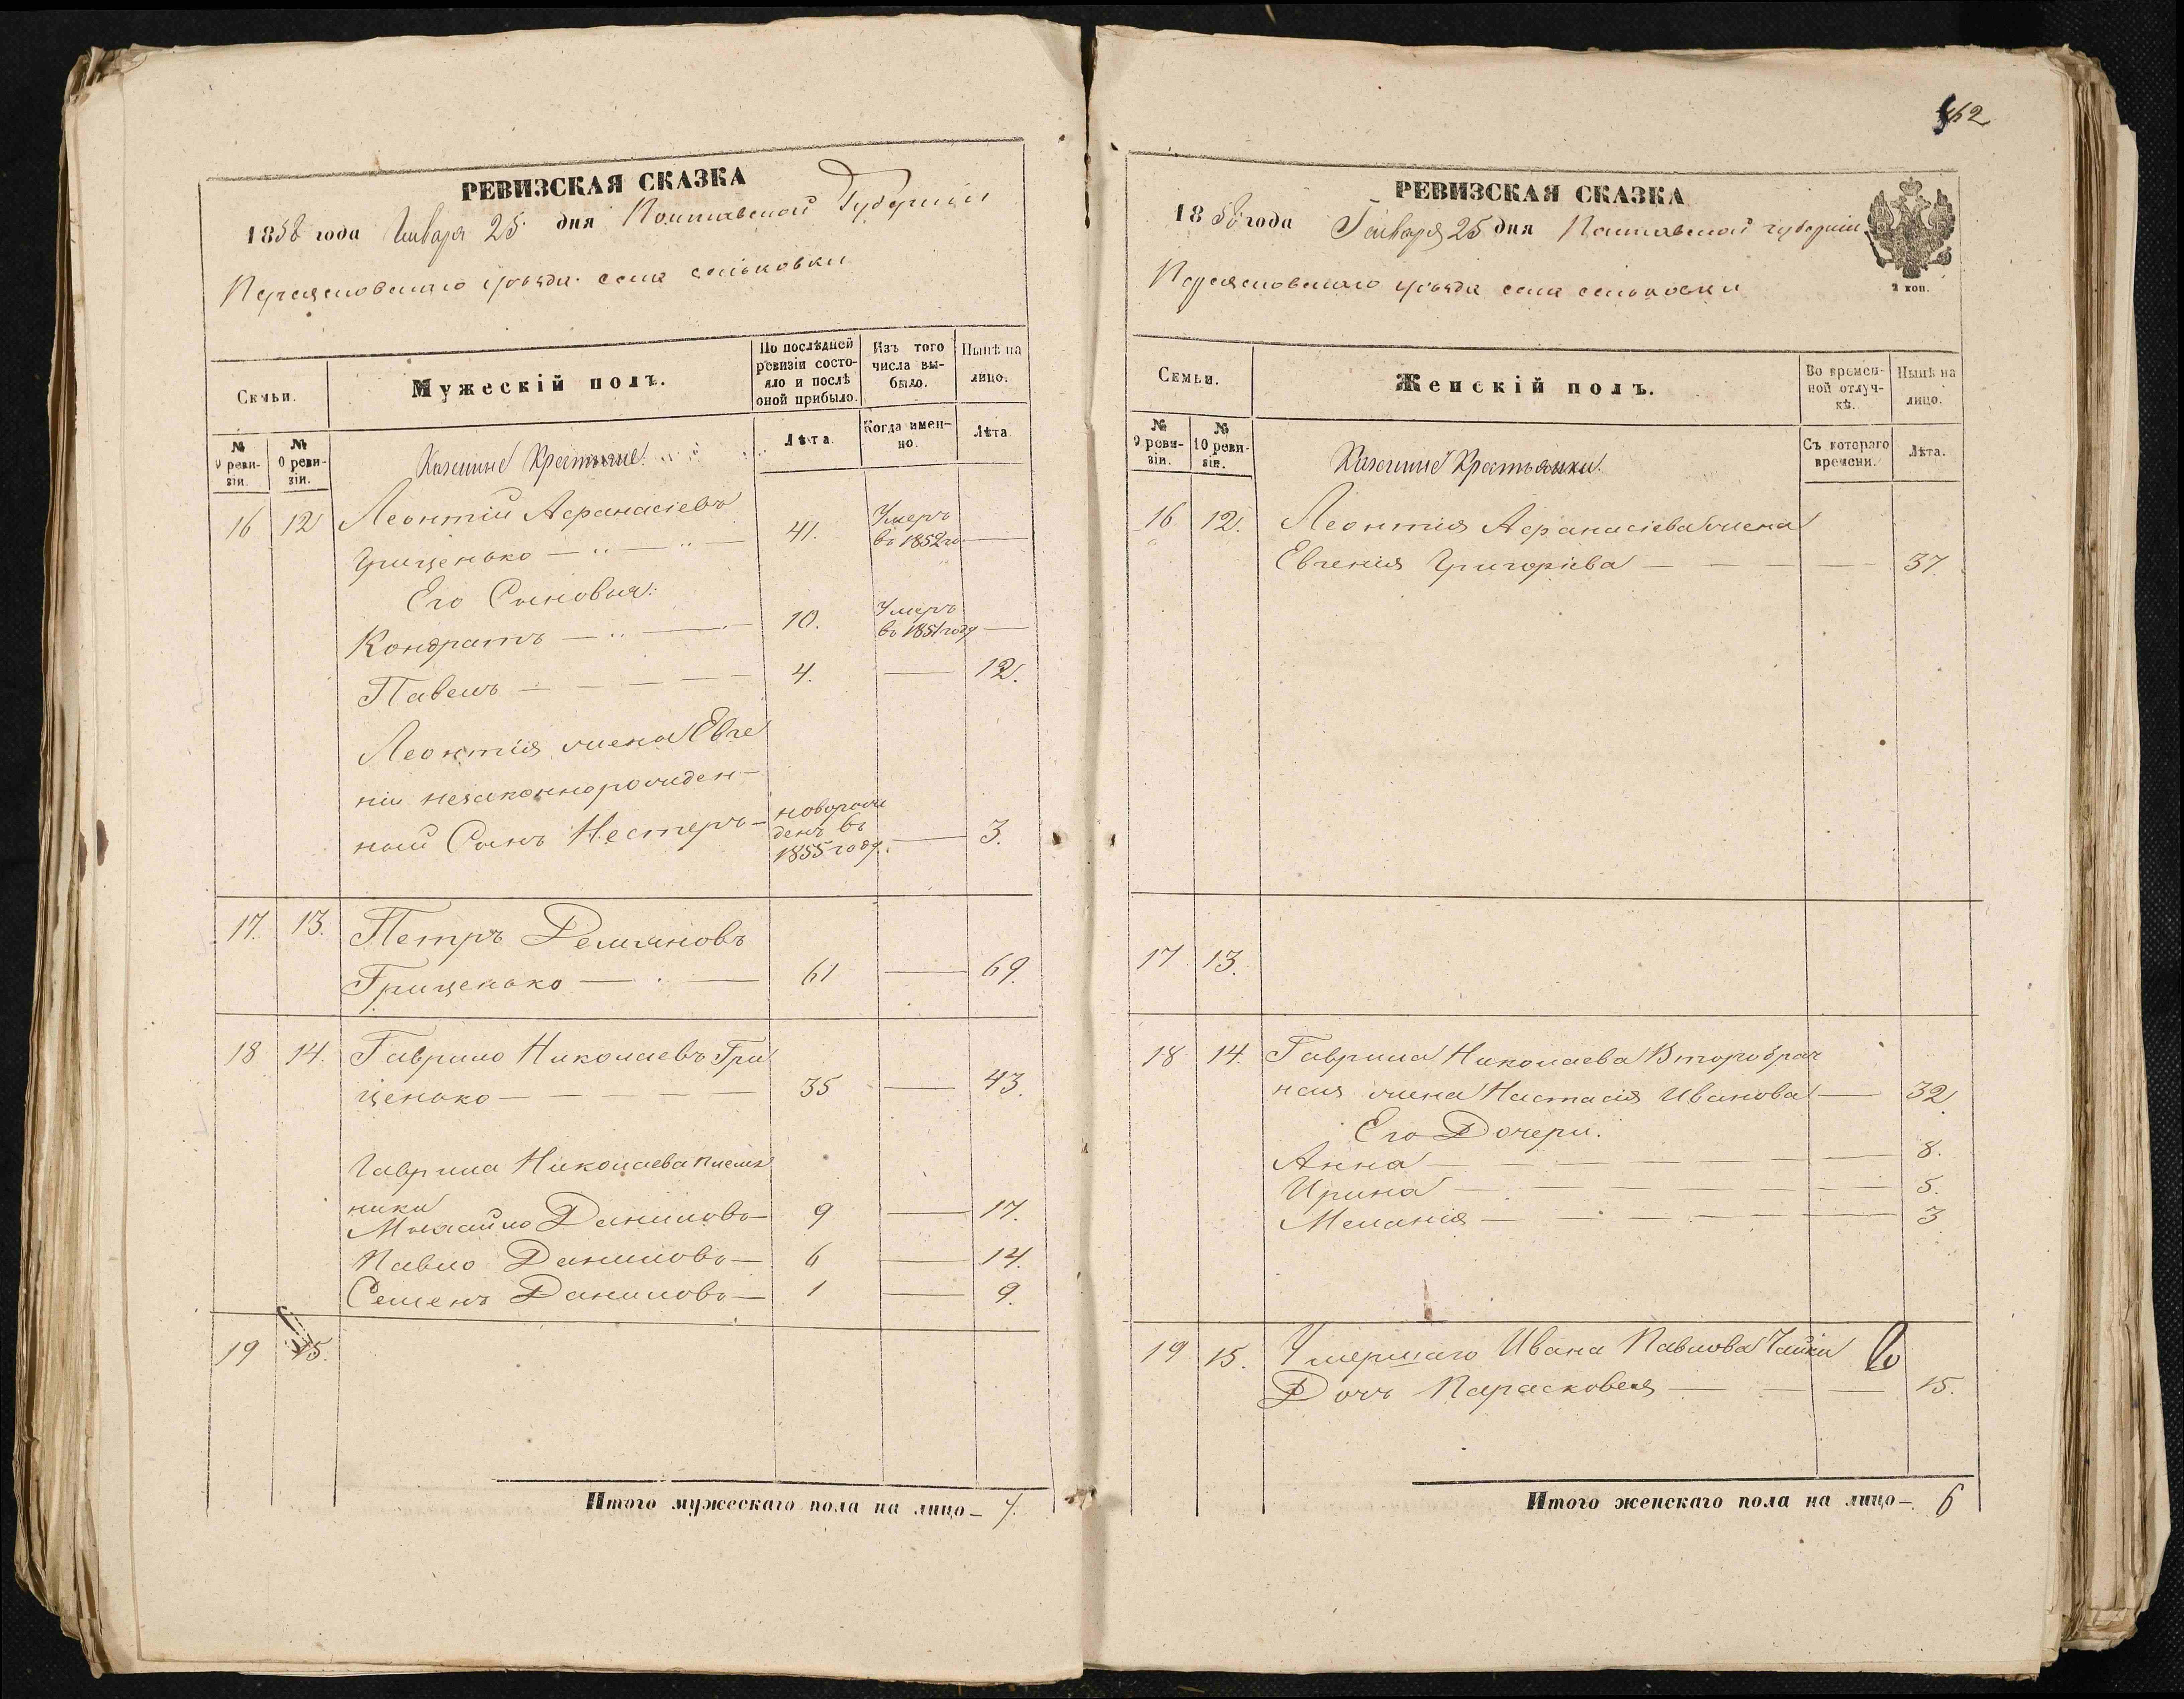 РЕВИЗСКАЯ СКАЗКА
1858 года Января 25 дня Полтавской Губерніи
Переясловскаго уѣзда села сеньковки
Семьи.
Мужескій полъ.
По послѣдней ревизіи состояло и послѣ оной прибыло.
Изъ того числа выбыло.
Нынѣ на лицо.
№ 9 ревизіи.
№ 10 ревизіи.
Казенные Крестьяне.
Лѣта.
Когда именно.
Лѣта.
16 12 Леонтій Афанасіевъ
Грищенько — 41. Умеръ въ 1852 го —
Его Сыновья:
Кондратъ — 10. Умеръ въ 1851 году —
Павелъ — 4. — 12.
Леонтія жены Евге
ніи незаконнорожден-
ный Сынъ Нестеръ — новорожденъ въ 1855 году. — 3.
17. 13. Петръ Демяновъ
Грищенько — 61 — 69.
18 14. Гаврило Николаевъ Гри
щенько — 35 — 43.
Гаврила Николаева племян
ники
Михайло Даниловъ — 9 — 17.
Павло Даниловъ — 6 — 14.
Семенъ Даниловъ — 1 — 9.
19 15.
Итого мужескаго пола на лицо — 7.
462
РЕВИЗСКАЯ СКАЗКА
1858 года Января 25 дня Полтавской губерніи
Переясловскаго уѣзда села сеньковки
2 коп.
Семьи.
Женскій полъ.
Во временной отлучкѣ.
Нынѣ на лицо.
№ 9 ревизіи.
№ 10 ревизіи.
Казенные Крестьянки.
Съ котораго времени.
Лѣта.
16 12. Леонтія Афанасіева жена
Евгенія Григоріева — 37
17 13.
18 14. Гаврила Николаева Вторабрач
ная жена Настасія Иванова — 32.
Его Дочери.
Анна — 8.
Ирина — 5.
Меланія — 3
19 15. Умершаго Ивана Павлова Чайки
Дочь Парасковея — 15.
Итого женскаго пола на лицо — 6